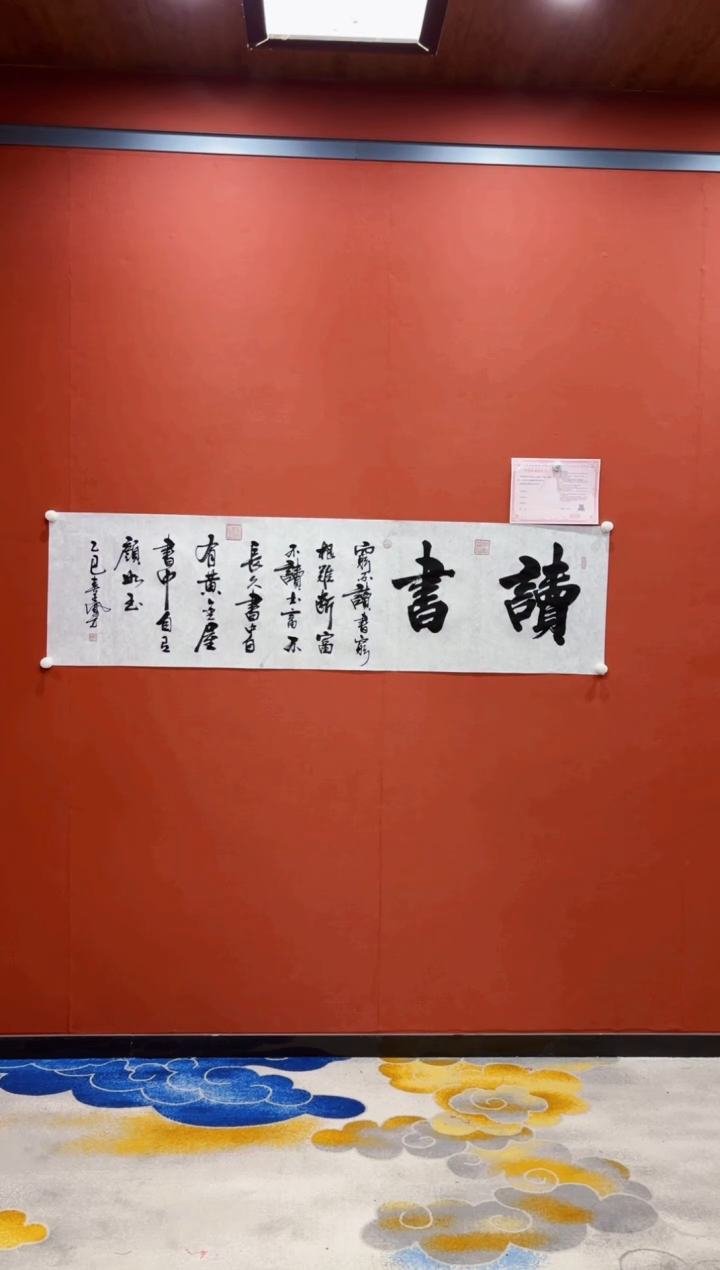 讀書
窮不讀書窮
根難斷富
不讀书富不
長久書中自
有黄金屋
書中自有
顏如玉
乙巳春